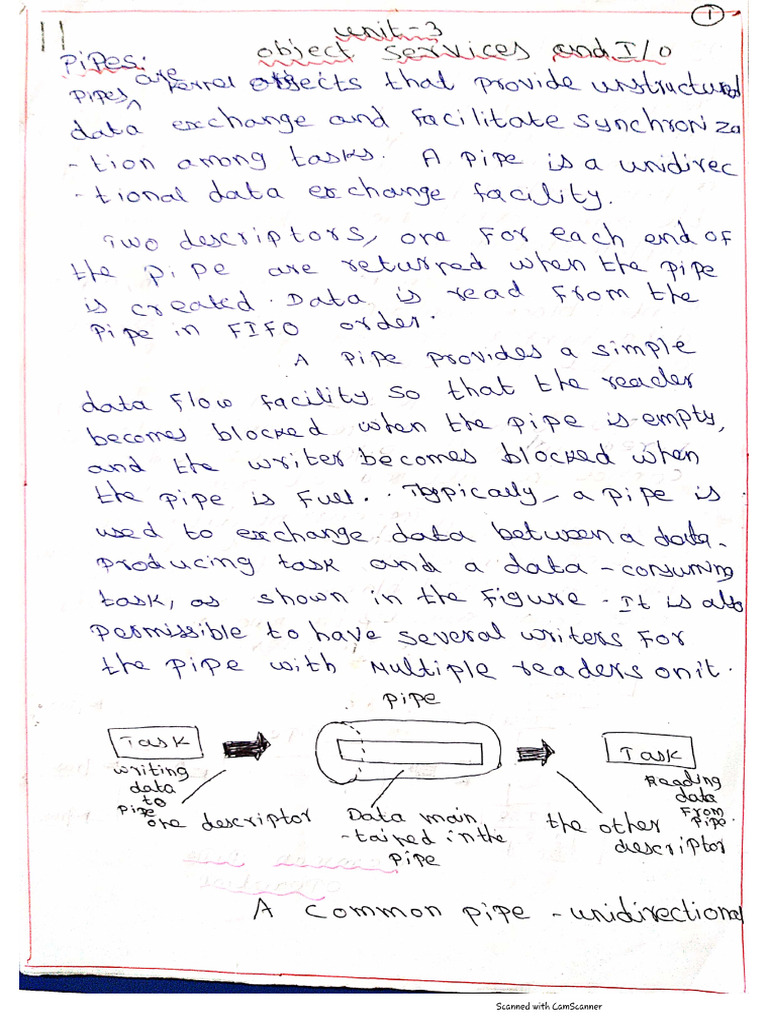 1
Unit-3
Object Services and I/O
Pipes:
Pipes are kernel objects that provide unstructured
data exchange and facilitate synchroniza
-tion among tasks. A pipe is a unidirec
-tional data exchange facility.
Two descriptors, one for each end of
the pipe are returned when the pipe
is created. Data is read from the
pipe in FIFO order.
A pipe provides a simple
data flow facility so that the reader
becomes blocked when the pipe is empty,
and the writer becomes blocked when
the pipe is full. Typically, a pipe is
used to exchange data between a data-
producing task and a data-consuming
task, as shown in the figure. It is also
permissible to have several writers for
the pipe with multiple readers on it.
pipe
Task
Task
writing
data
to
pipe
one descriptor
Data main
-tained in the
pipe
the other
descriptor
Reading
data
From
Pipe.
A common pipe - unidirectional
Scanned with CamScanner